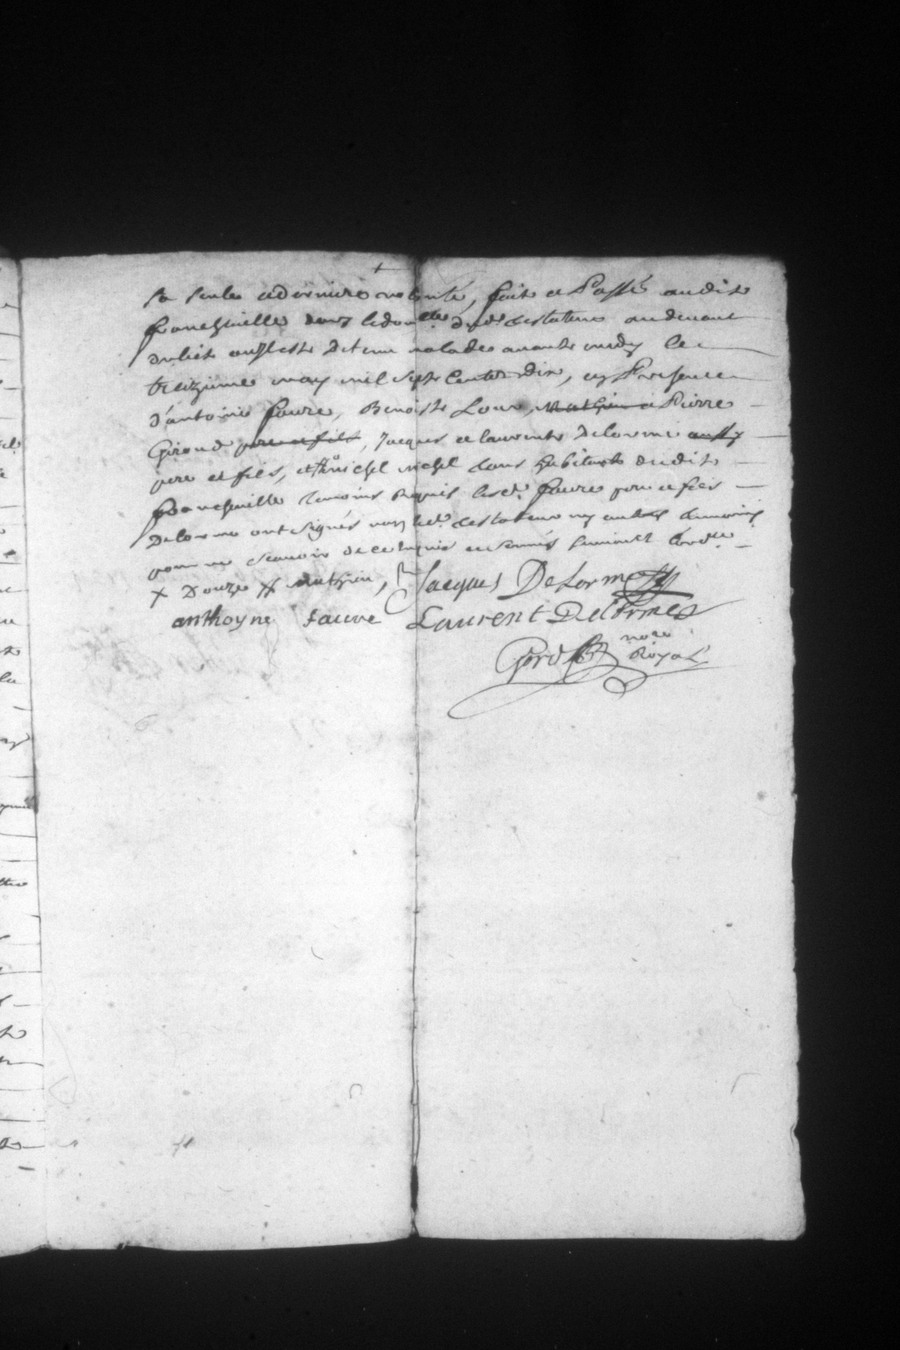 sa seule et derniere volonté, fait et Passé audit
francheville dans le domcille dud. testateur au devant
du lict ou il est detenu malade avant midy le
treizieme may mil sept cents dix, en Presence
d'antoine faure, Benoist Lour, Mathieu et Pierre
Giroud pere et fils, Jacques et laurent delorme aussy
pere et fils, et michel tous habitants dudit
francheville temoins requis lesd. faure pere et fils
Delorme ont signés non led. testateur ny autres temoins
pour ne scavoir de ce enquis et sommés suivant l'ord.ce
x Douze # mathieu,
Jacques Delorme
anthoyne faure Laurent Delorme
nore
Royal